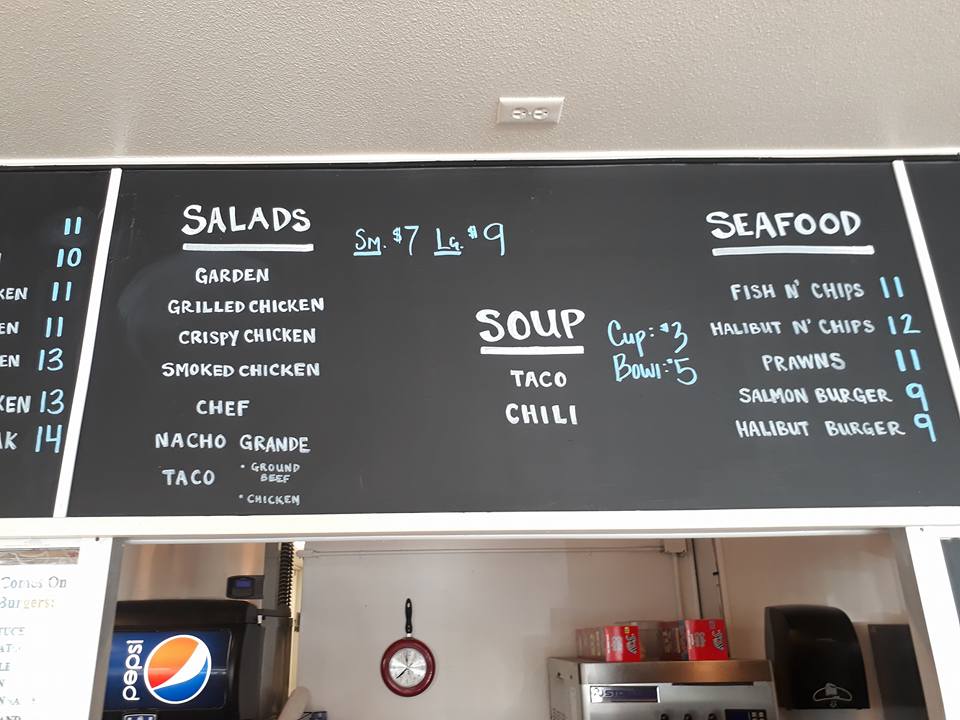 11
10
KEN 11
EN 11
EN 13
KEN 13
AK 14
SALADS
SM. $7 LG. $9
GARDEN
GRILLED CHICKEN
CRISPY CHICKEN
SMOKED CHICKEN
CHEF
NACHO GRANDE
TACO • GROUND
BEEF
• CHICKEN
SOUP
Cup: $3
Bowl: $5
TACO
CHILI
SEAFOOD
FISH N' CHIPS 11
HALIBUT N' CHIPS 12
PRAWNS 11
SALMON BURGER 9
HALIBUT BURGER 9
Comes On
Burgers:
pepsi